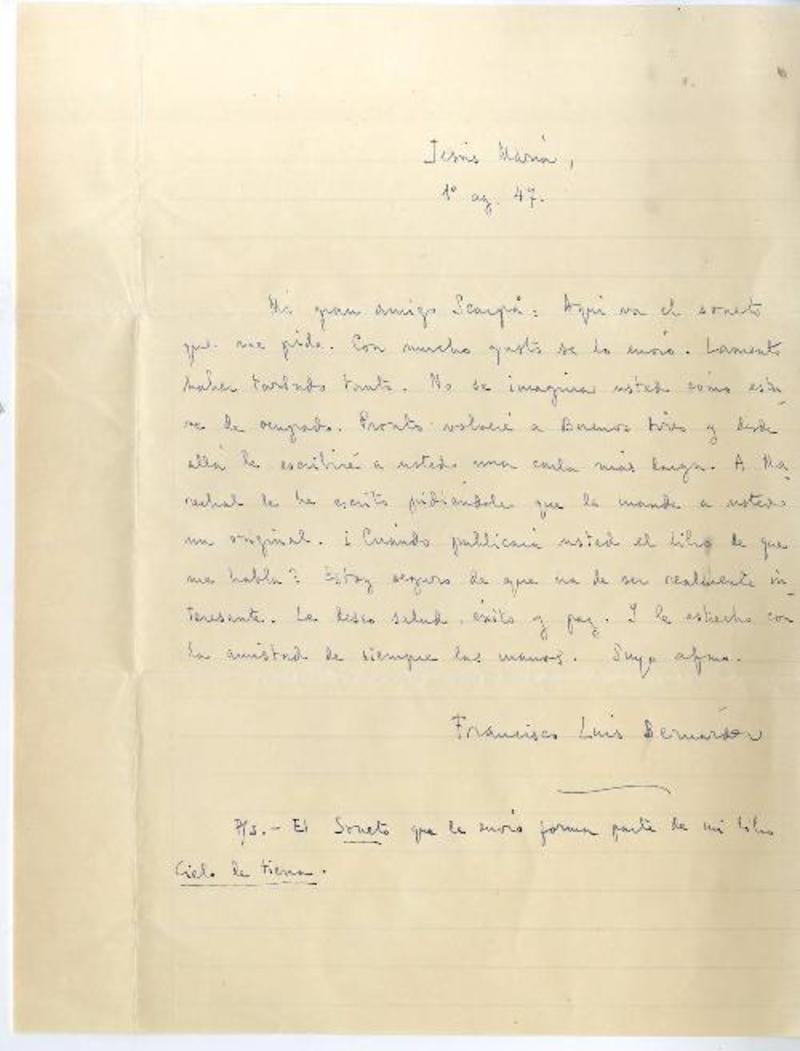 Jesús María,
1º ag. 47.
Mi gran amigo Scarpa: Aquí va el soneto
que me pide. Con mucho gusto se lo envío. Lamento
haber tardado tanto. No se imagina usted cómo estu-
ve de ocupado. Pronto volveré a Buenos Aires y desde
allá le escribiré a usted una carta más larga. A Ma-
rechal le he escrito pidiéndole que le mande a usted
un original. ¿Cuándo publicará usted el libro de que
me habla? Estoy seguro de que ha de ser realmente in-
teresante. Le deseo salud, éxito y paz. Y le estrecho con
la amistad de siempre las manos. Suyo afmo.
Francisco Luis Bernárdez
P/s.- El Soneto que le envío forma parte de mi libro
Cielo de tierra.